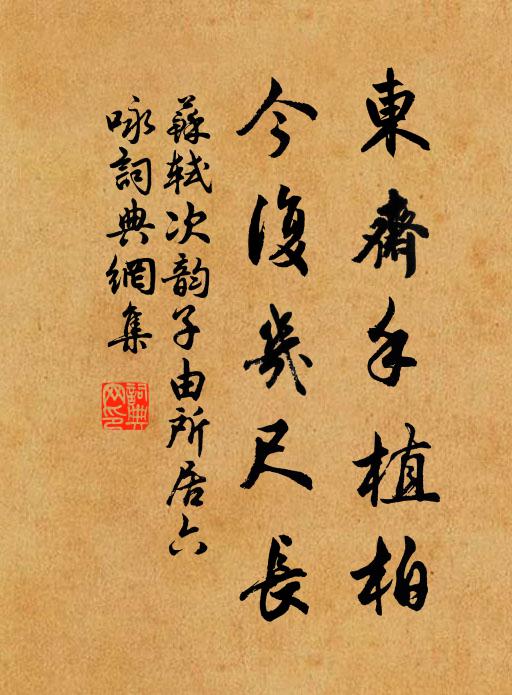 東齋手植柏
今復幾尺長
蘇軾次韵子由所居六
咏詞典網集
詞典
网印